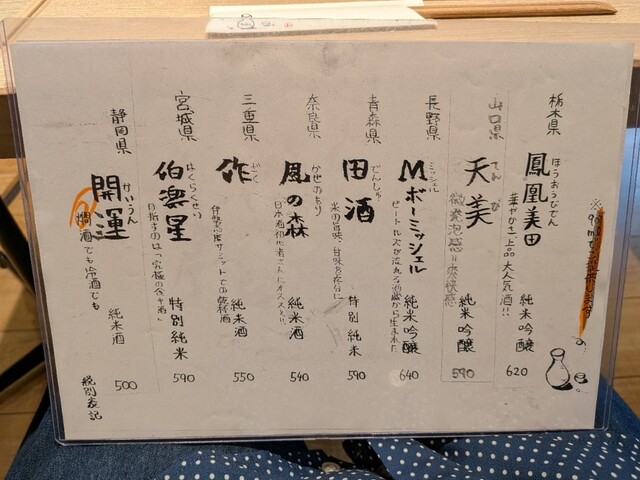 ※90mlで提供します
栃木県
ほうおうびでん
鳳凰美田
華やかさ上品 大人気酒!!
純米吟醸
620
山口県
てんび
天美
微発泡感=爽快感
純米吟醸
590
長野県
ミッシェル
Mボーミッシェル
ビートルズが流れる酒蔵から生まれた
純米吟醸
640
青森県
でんしゅ
田酒
米の旨味、甘味を存分に
特別純米
590
奈良県
かぜのもり
風の森
日本酒初心者さんにオススメ!!
純米酒
540
三重県
ざく
作
伊勢志摩サミットでの乾杯酒
純米酒
550
宮城県
はくらくせい
伯楽星
目指すのは「究極の食中酒」
特別純米
590
静岡県
かいうん
開運
燗酒でも冷酒でも
純米酒
500
税別表記